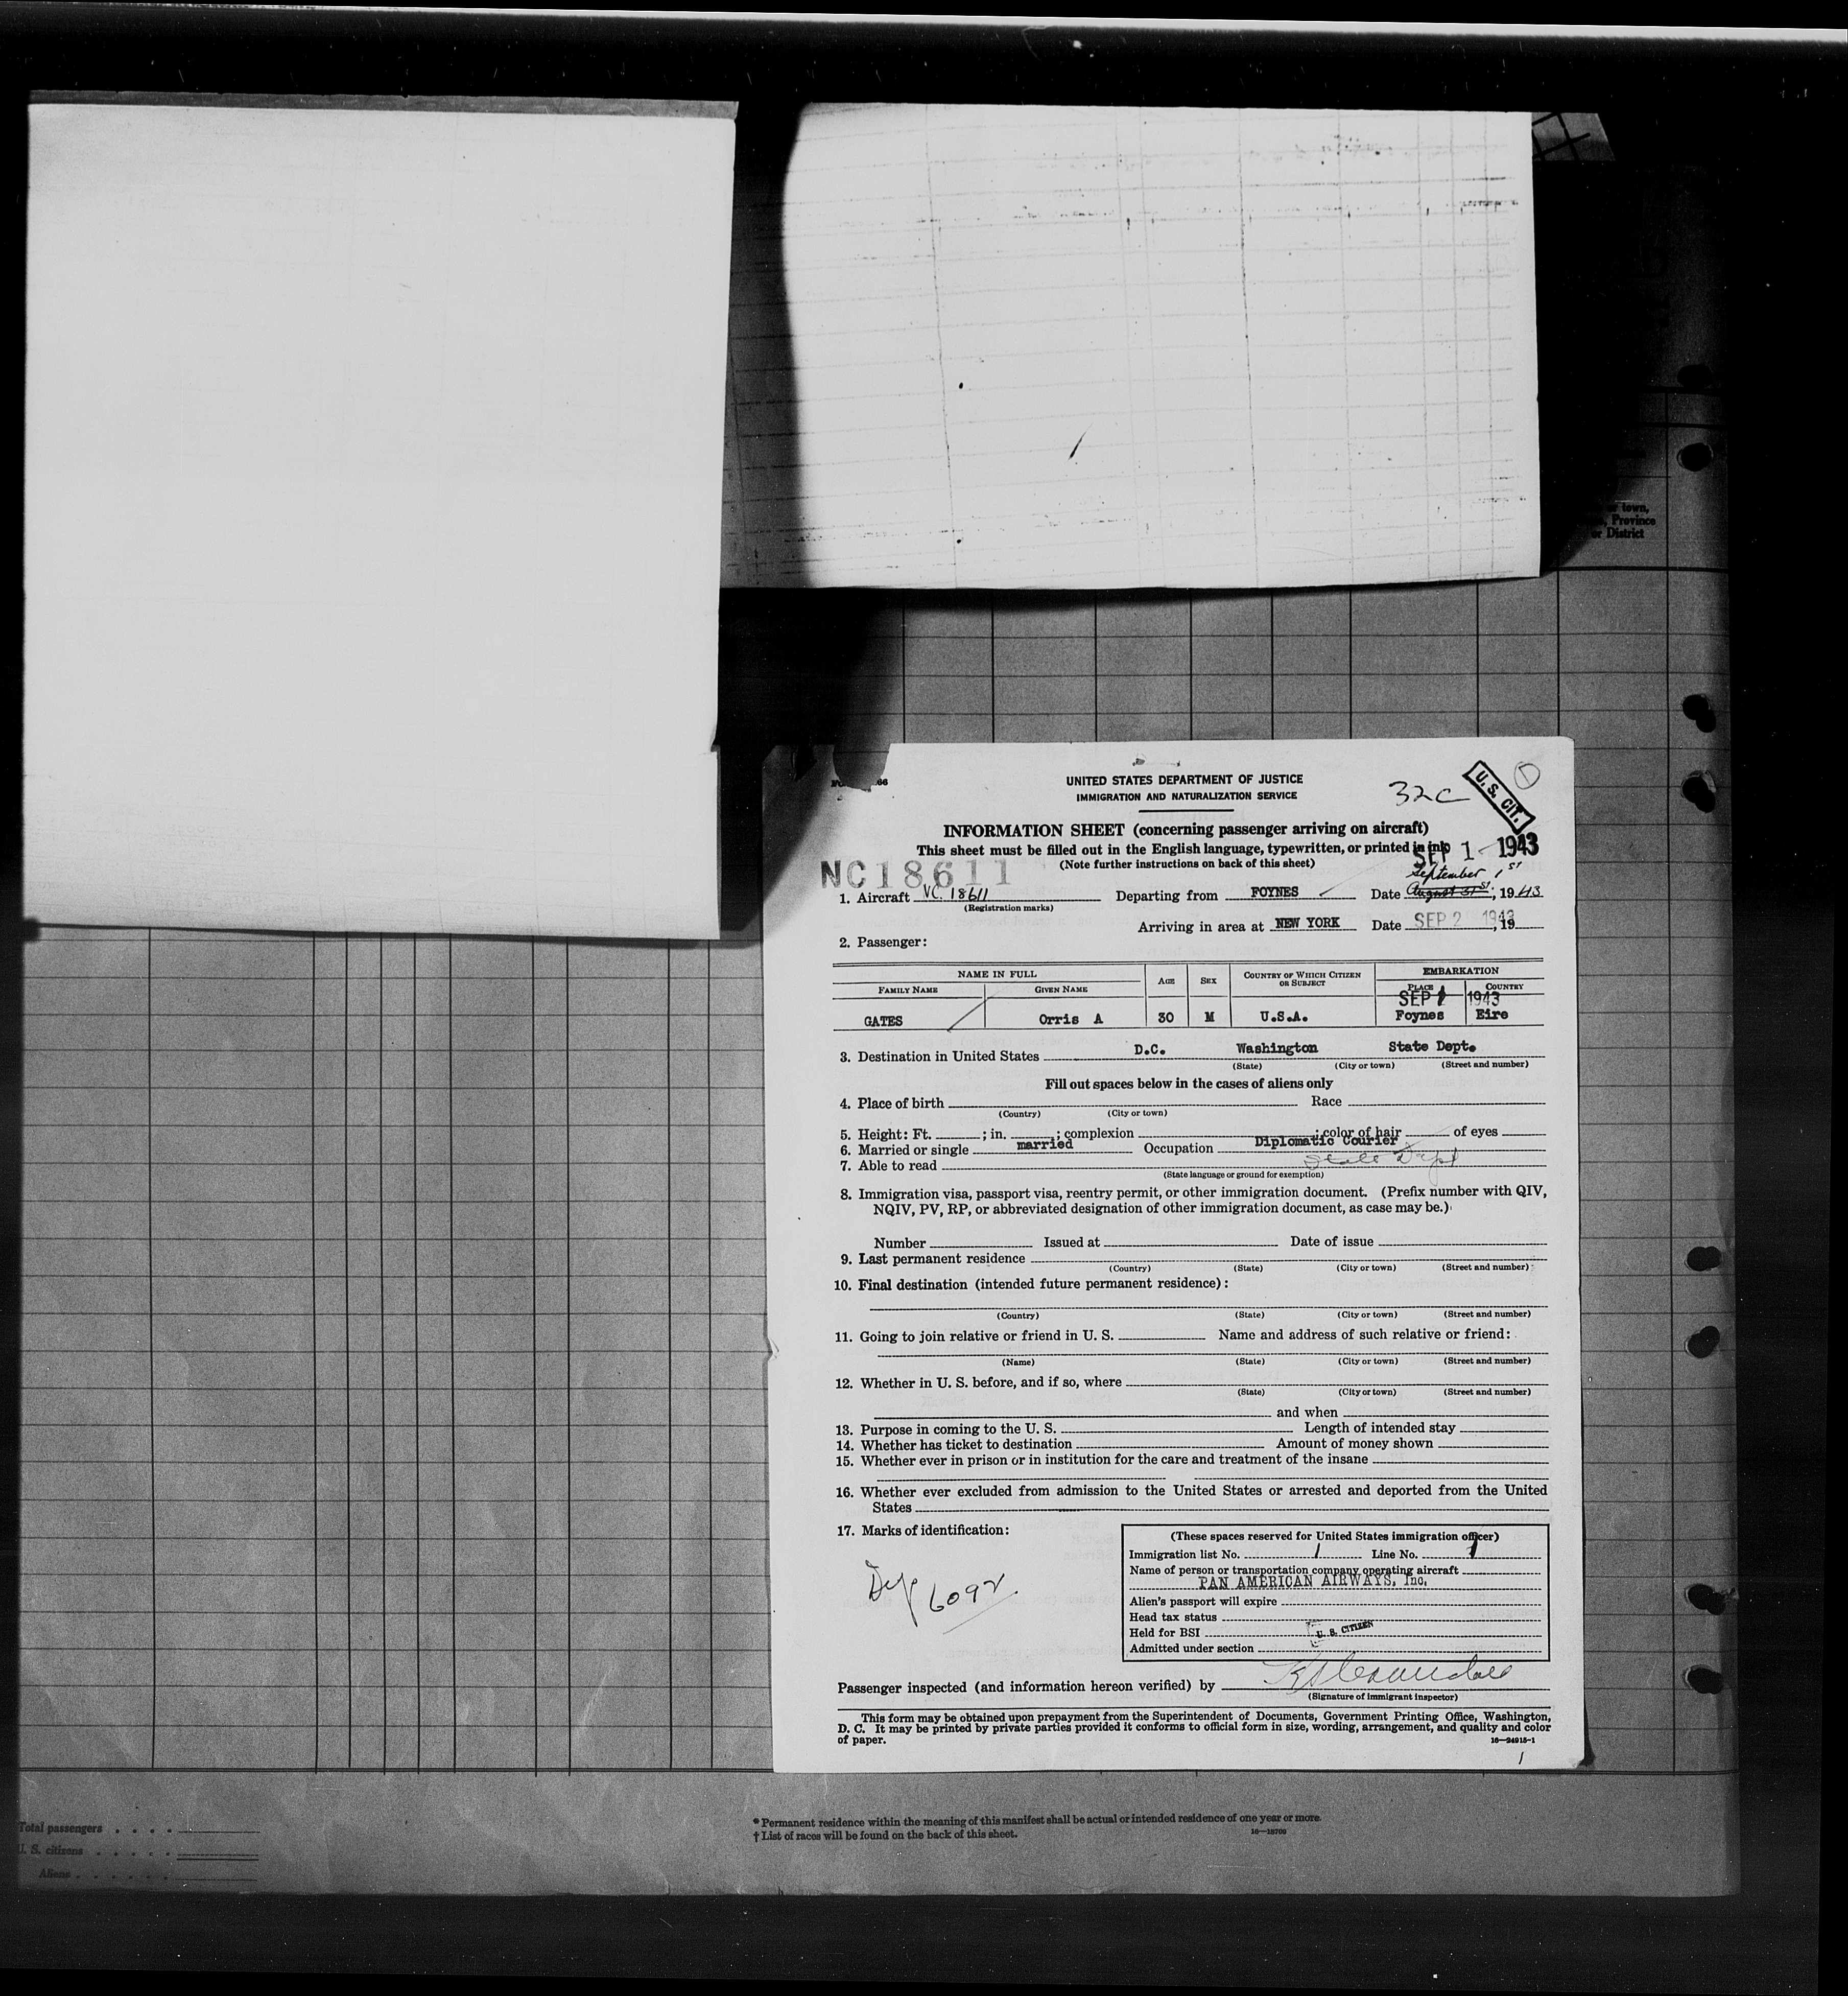 or town,
Province
or District
66
UNITED STATES DEPARTMENT OF JUSTICE
IMMIGRATION AND NATURALIZATION SERVICE
32c
U. S. CIT.
INFORMATION SHEET (concerning passenger arriving on aircraft)
This sheet must be filled out in the English language, typewritten, or printed in ink
SEP 1 - 1943
(Note further instructions on back of this sheet)
NC18611
September 1st
1. Aircraft NC. 18611 Departing from FOYNES Date August 31st, 1943
(Registration marks)
Arriving in area at NEW YORK Date SEP 2 1943, 19
2. Passenger:
NAME IN FULL AGE SEX COUNTRY OF WHICH CITIZEN OR SUBJECT EMBARKATION
FAMILY NAME GIVEN NAME PLACE COUNTRY
SEP 1 1943
GATES Orris A 30 M U.S.A. Foynes Eire
3. Destination in United States D.C. Washington State Dept.
(State) (City or town) (Street and number)
Fill out spaces below in the cases of aliens only
4. Place of birth Race
(Country) (City or town)
5. Height: Ft. ; in. ; complexion ; color of hair of eyes
6. Married or single married Occupation Diplomatic Courier
7. Able to read State Dept
(State language or ground for exemption)
8. Immigration visa, passport visa, reentry permit, or other immigration document. (Prefix number with QIV,
NQIV, PV, RP, or abbreviated designation of other immigration document, as case may be.)
Number Issued at Date of issue
9. Last permanent residence
(Country) (State) (City or town) (Street and number)
10. Final destination (intended future permanent residence):
(Country) (State) (City or town) (Street and number)
11. Going to join relative or friend in U. S. Name and address of such relative or friend:
(Name) (State) (City or town) (Street and number)
12. Whether in U. S. before, and if so, where
(State) (City or town) (Street and number)
and when
13. Purpose in coming to the U. S. Length of intended stay
14. Whether has ticket to destination Amount of money shown
15. Whether ever in prison or in institution for the care and treatment of the insane
16. Whether ever excluded from admission to the United States or arrested and deported from the United
States
17. Marks of identification:
6092
(These spaces reserved for United States immigration officer)
Immigration list No. 1 Line No. 1
Name of person or transportation company operating aircraft
PAN AMERICAN AIRWAYS, Inc.
Alien's passport will expire
Head tax status
Held for BSI U. S. CITIZEN
Admitted under section
Passenger inspected (and information hereon verified) by
(Signature of immigrant inspector)
This form may be obtained upon prepayment from the Superintendent of Documents, Government Printing Office, Washington,
D. C. It may be printed by private parties provided it conforms to official form in size, wording, arrangement, and quality and color
of paper.
16—24915-1
1
Total passengers . . . .
U. S. citizens . . . . .
Aliens . . . . . .
* Permanent residence within the meaning of this manifest shall be actual or intended residence of one year or more.
† List of races will be found on the back of this sheet.
16—18709